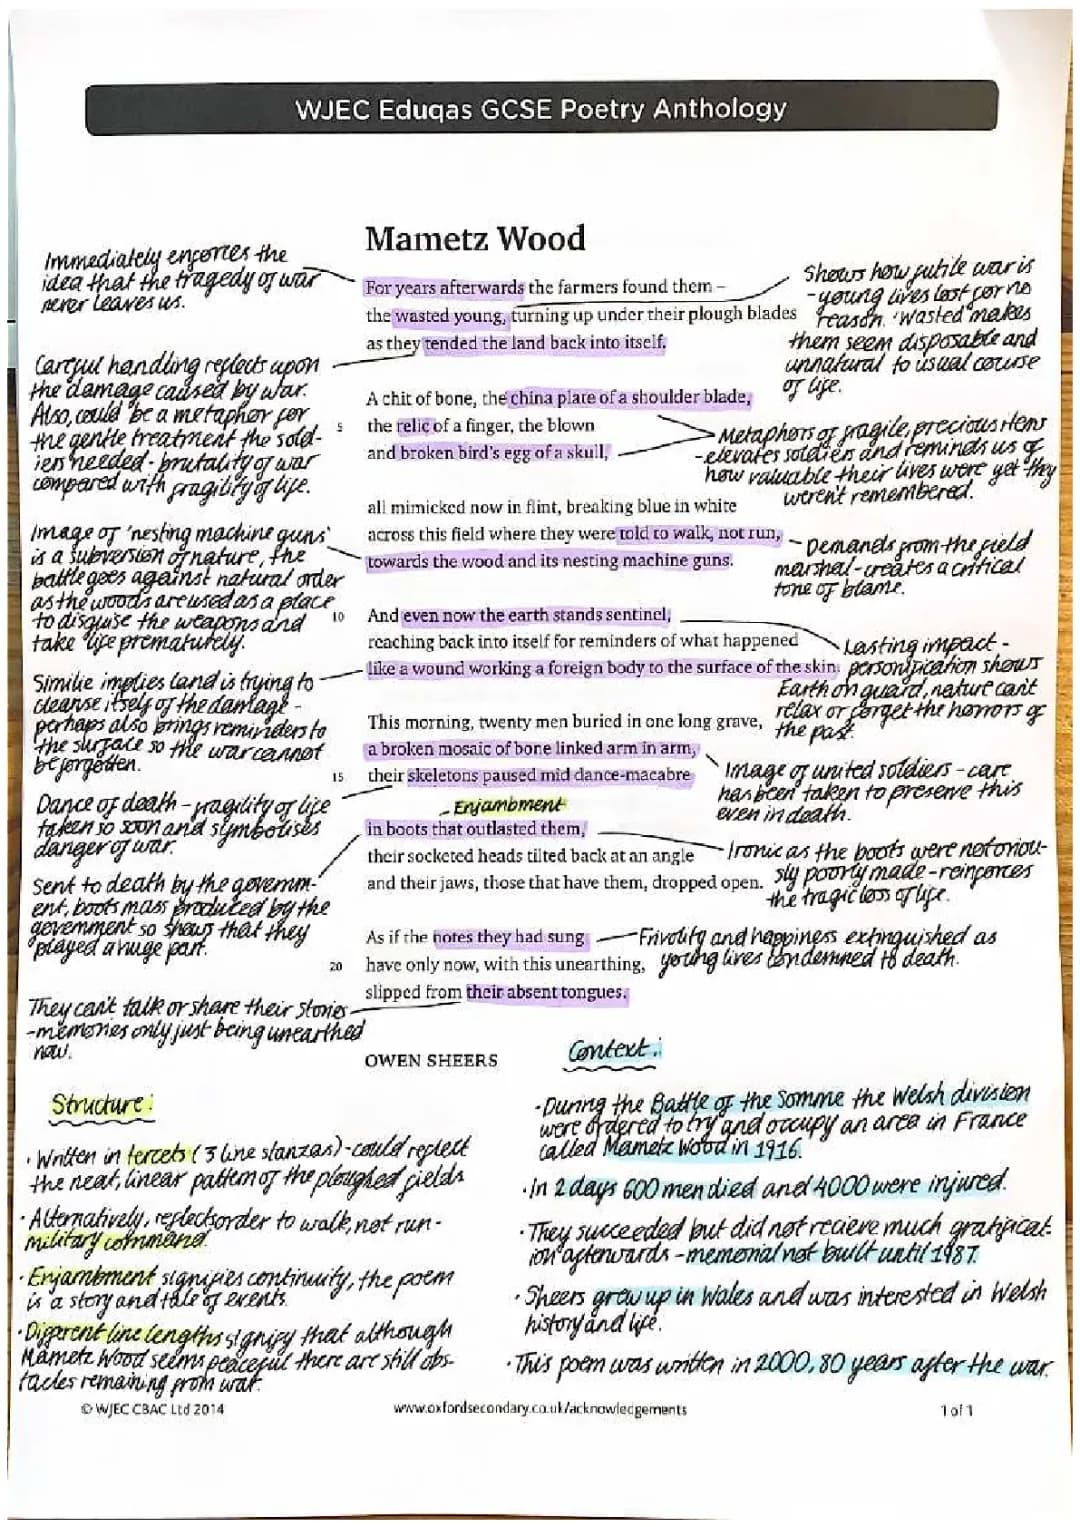 WJEC Eduqas GCSE Poetry Anthology
Mametz Wood
Immediately enforces the
idea that the tragedy of war
never leaves us.
For years afterwards the farmers found them –
the wasted young, turning up under their plough blades
as they tended the land back into itself.
Shows how futile war is
- young lives lost for no
reason. 'Wasted' makes
them seem disposable and
unnatural to usual course
of life.
Careful handling reflects upon
the damage caused by war.
Also, could be a metaphor for
the gentle treatment the sold-
iers needed - brutality of war
compared with fragility of life.
A chit of bone, the china plate of a shoulder blade,
5 the relic of a finger, the blown
and broken bird's egg of a skull,
Metaphors of fragile, precious items
- elevates soldiers and reminds us of
how valuable their lives were yet they
weren't remembered.
all mimicked now in flint, breaking blue in white
across this field where they were told to walk, not run,
towards the wood and its nesting machine guns.
Image of 'nesting machine guns'
is a subversion of nature, the
battle goes against natural order
as the woods are used as a place
to disguise the weapons and
take life prematurely.
Demands from the field
marshal - creates a critical
tone of blame.
10 And even now the earth stands sentinel,
reaching back into itself for reminders of what happened
like a wound working a foreign body to the surface of the skin.
Lasting impact -
personification shows
Earth on guard, nature can't
relax or forget the horrors of
the past.
Similie implies land is trying to
cleanse itself of the damage -
perhaps also brings reminders to
the surface so the war cannot
be forgotten.
This morning, twenty men buried in one long grave,
a broken mosaic of bone linked arm in arm,
15 their skeletons paused mid dance-macabre
Image of united soldiers - care
has been taken to preserve this
even in death.
Dance of death - fragility of life
taken so soon and symbolises
danger of war.
- Enjambment
in boots that outlasted them,
their socketed heads tilted back at an angle
and their jaws, those that have them, dropped open.
Ironic as the boots were notoriou-
sly poorly made - reinforces
the tragic loss of life.
Sent to death by the governm-
ent, boots mass produced by the
government so shows that they
played a huge part.
As if the notes they had sung
20 have only now, with this unearthing,
slipped from their absent tongues.
Frivolity and happiness extinguished as
young lives condemned to death.
They can't talk or share their stories
- memories only just being unearthed
now.
OWEN SHEERS
Structure:
· Written in tercets (3 line stanzas) - could reflect
the neat, linear pattern of the ploughed fields
· Alternatively, reflects order to walk, not run -
military command.
· Enjambment signifies continuity, the poem
is a story and tale of events.
· Different line lengths signify that although
Mametz Wood seems peaceful there are still obs-
tacles remaining from war.
Context:
· During the Battle of the Somme the Welsh division
were ordered to try and occupy an area in France
called Mametz Wood in 1916.
· In 2 days 600 men died and 4000 were injured.
· They succeeded but did not recieve much gratificat-
ion afterwards - memorial not built until 1987.
· Sheers grew up in Wales and was interested in Welsh
history and life.
· This poem was written in 2000, 80 years after the war.
© WJEC CBAC Ltd 2014
www.oxfordsecondary.co.uk/acknowledgements
1 of 1